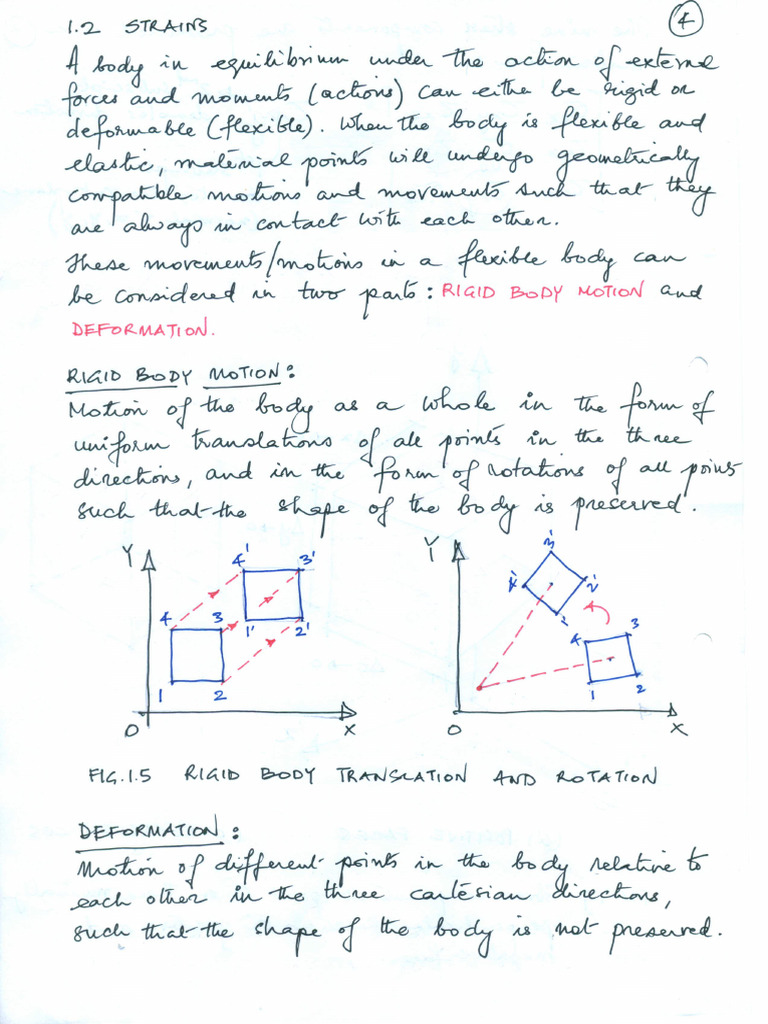 1.2 STRAINS
4
A body in equilibrium under the action of external
forces and moments (actions) can either be rigid or
deformable (flexible). When the body is flexible and
elastic, material points will undergo geometrically
compatible motions and movements such that they
are always in contact with each other.
These movements/motions in a flexible body can
be considered in two parts: RIGID BODY MOTION and
DEFORMATION.
RIGID BODY MOTION:
Motion of the body as a whole in the form of
uniform translations of all points in the three
directions, and in the form of rotations of all points
such that the shape of the body is preserved.
Y
4' 3'
4 3 1' 2'
1 2
O X
Y
3'
4' 2'
1'
4 3
1 2
O X
FIG.1.5 RIGID BODY TRANSLATION AND ROTATION
DEFORMATION:
Motion of different points in the body relative to
each other in the three cartesian directions,
such that the shape of the body is not preserved.